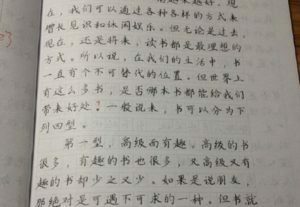 在，我们可以通过各种各样的方式来
增长见识和休闲娱乐。但无论是过去，
现在，还是将来，读书都是最理想的
方式。所以说，在我们的生活中，书
一直有个不可替代的位置。但世界上
有这么多书，是否哪本书都能给我们
带来好处？一般说来，书可以分为下
列四型。
第一型，高级而有趣。高级的书
很多，有趣的书也很多，又高级又有
趣的书却少之又少。如果是说朋友，
那绝对是可遇不可求的一种。但书就